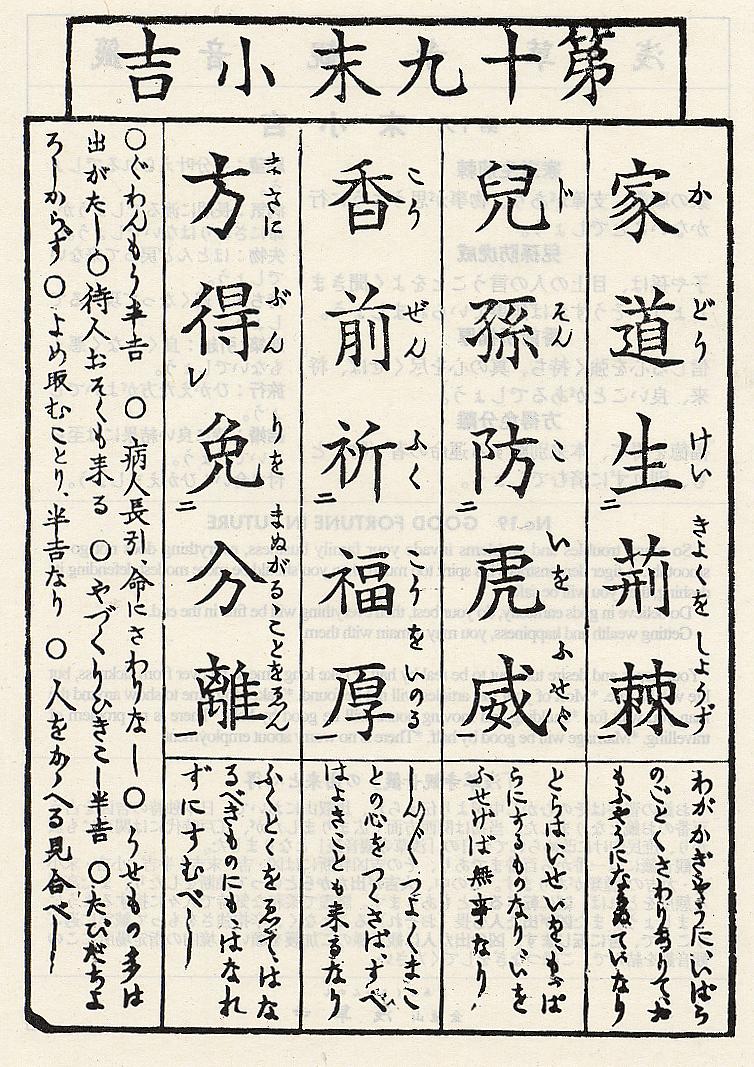 第十九末小吉
家道生荊棘
かどうけいきよくをしよず
わがかぎやうにいばら
のごとくさわりありてお
もふやうにならぬていなり
兒孫防虎威
じそんこいをふせぐ
とらはいせいをもつぱ
らにするものなり、いを
ふせげば無事なり
香前祈福厚
こうぜんふくこうをいのる
しん〴〵つよくしまこ
との心をつくさばすへ
はよきことも来るなり
方得免分離
まさにぶんりをまぬがることをゑべし
ふくとくをゑてはな
るべきものにもはなれ
ずにすむべし
〇ぐわんもう半吉 〇病人長引命にさわりなし 〇うせもの多は
出がたし 〇待人おそくも来る 〇やづくりひきこし半吉 〇たびだちよ
ろしからず 〇よめ取むことり、半吉なり 〇人をかゝへる見合べし